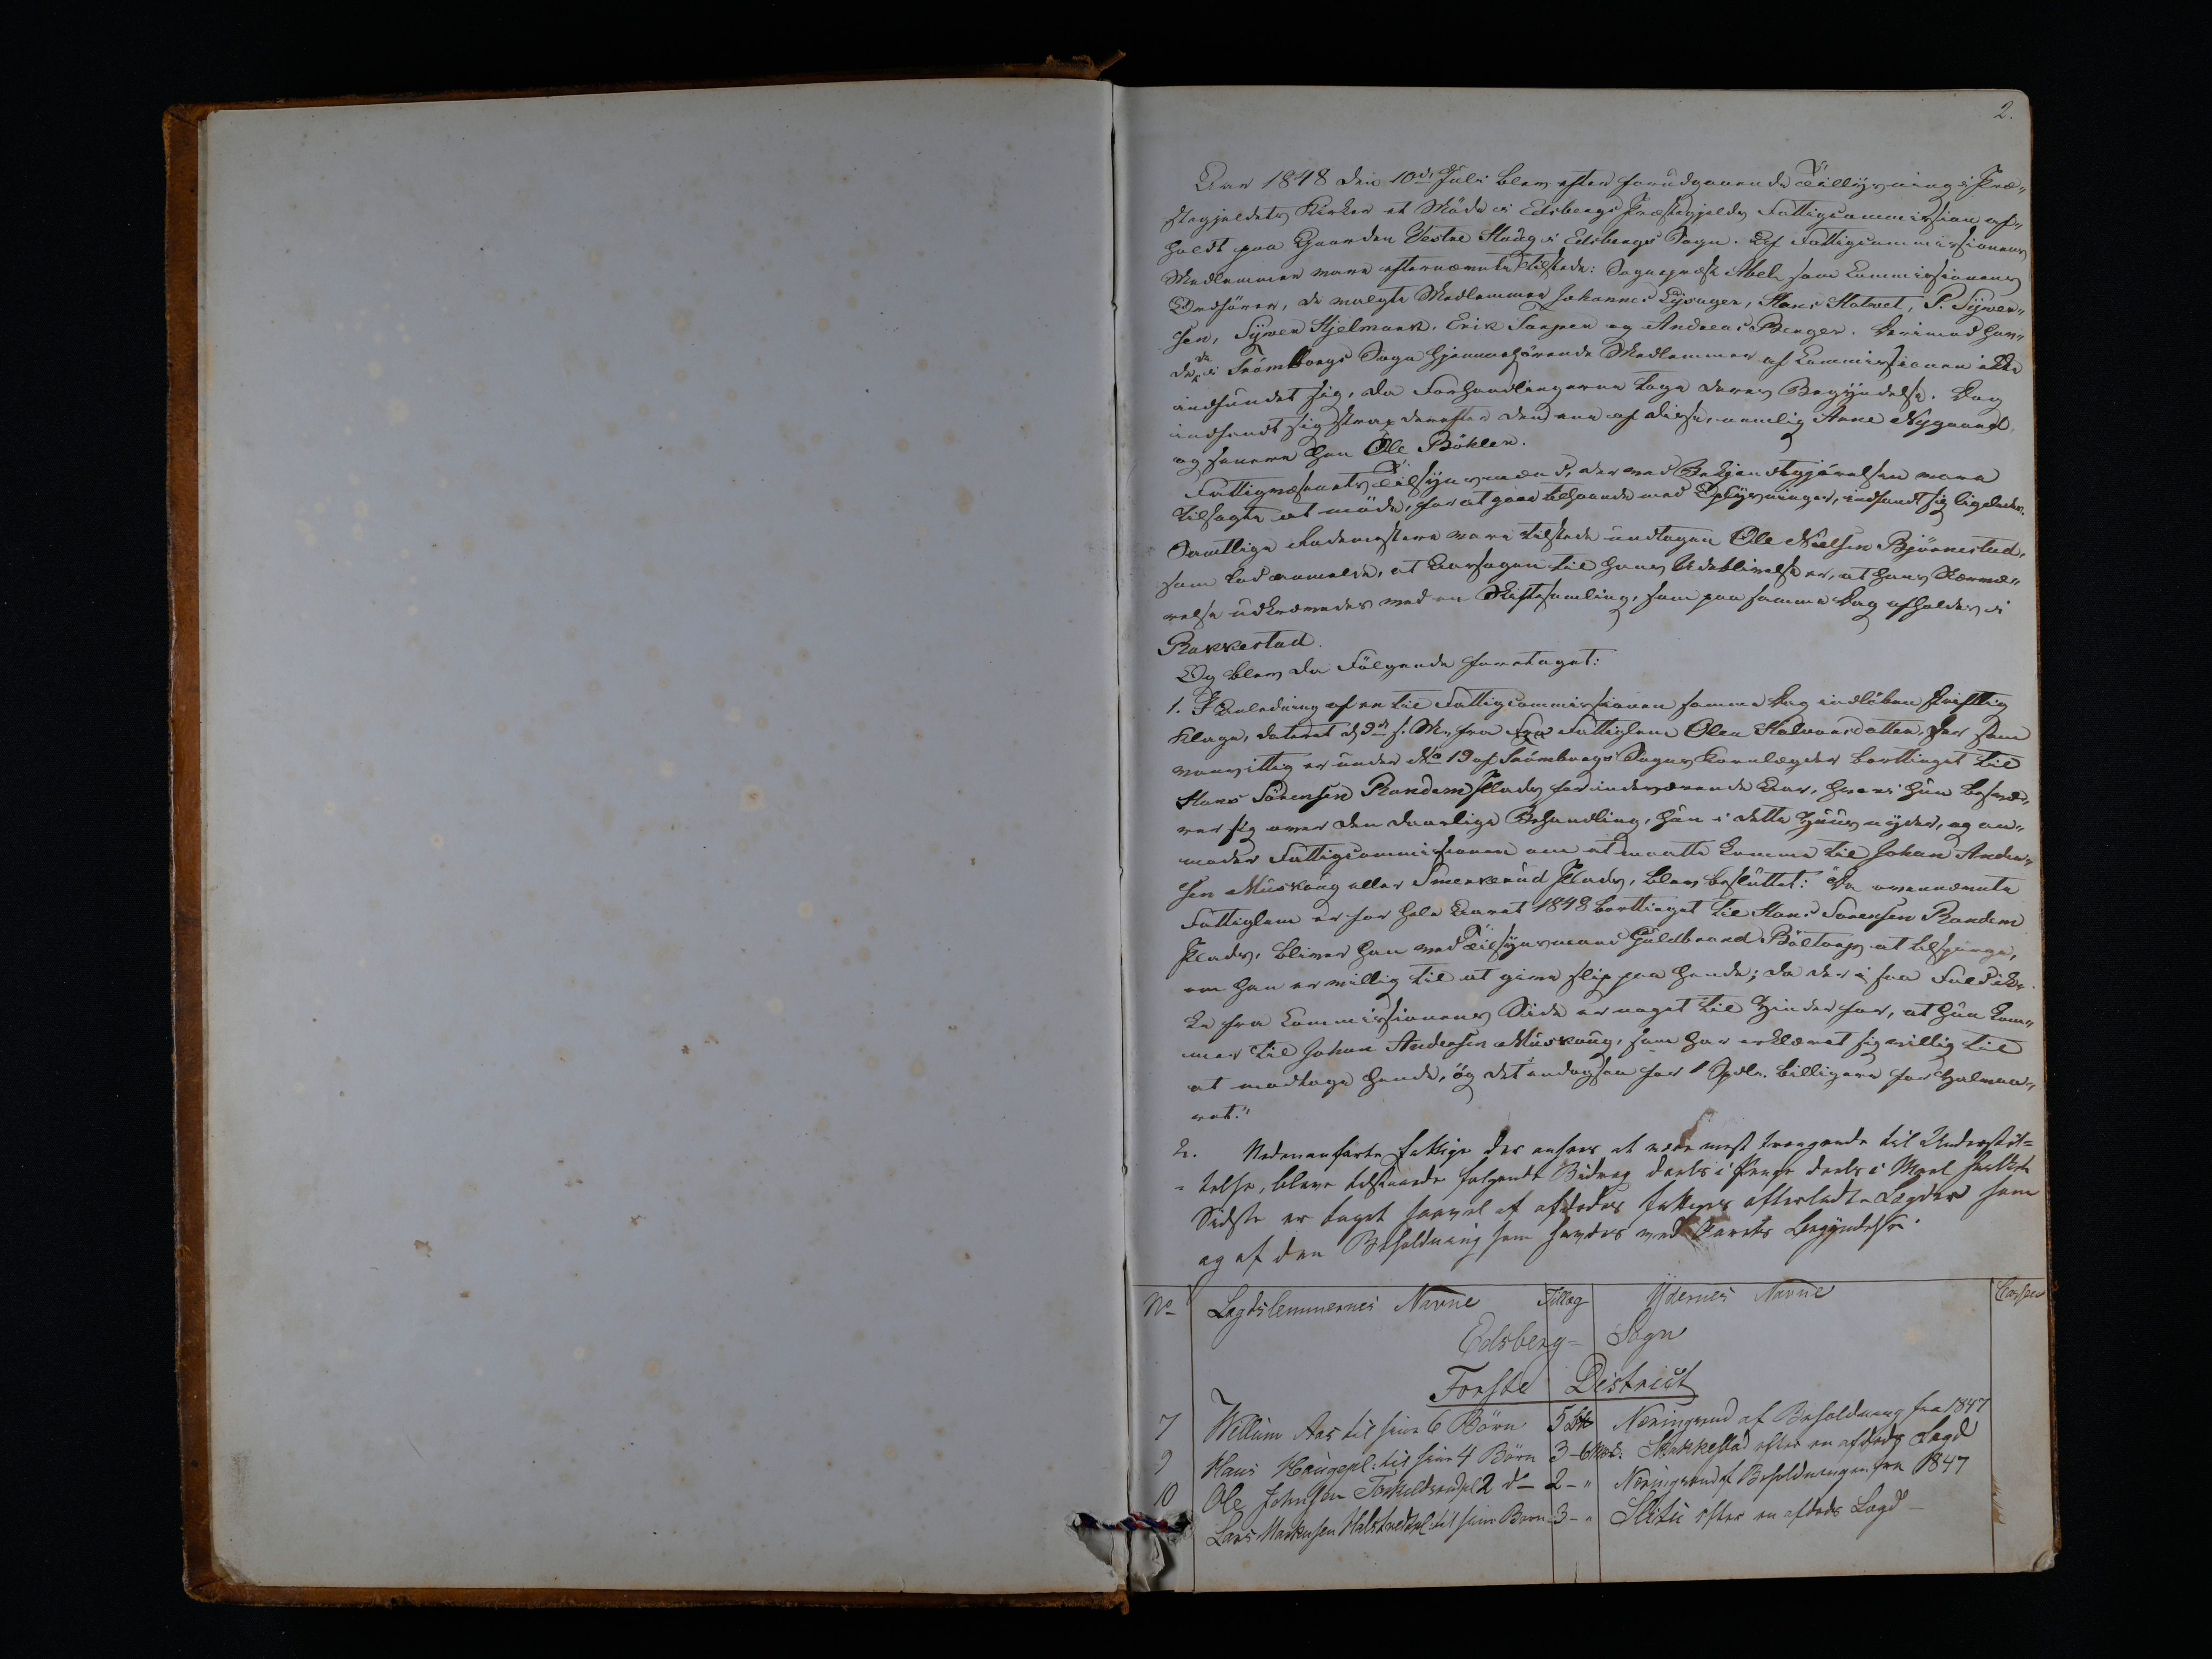 2.
Aar 1848 den 10de Juli blev efter forudgaaende Tillysning i Præ„
stegjeldets Kirker et Møde i Edsbergs Præstegjelds Fattigcommission af„
holdt paa Gaarden Vestre Haug i Edsbergs Sogn. Af Fattigcommissionens
Medlemmer vare efternævnte tilstede: Sognepræst Abel som Commissionens
Ordfører, de valgte Medlemmer Johannes Lysager, Hans Hotvet, P. Syver„
sen, Syver Hjelmark, Erik Torper og Andreas Berger. Derimod hav„
de de i Trømborgs Sogn hjemmehørende Medlemmer af Commissionen ikke
indfundet sig, da Forhandlingerne toge deres Begyndelse. Dog
indfandt sig strax derefter den ene af disse, nemlig Arne Nygaard,
og senere hen Ole Bøhler.
Fattigvæsenets Tilsynsmænd, der ved Bekjendtgjørelsen vare
tilsagte at møde, for at gaae tilhaande med Oplysninger, indfandt sig ligeledes.
Samtlige Rodemestere vare tilstede undtagen Ole Nielsen Bjørnestad,
som lod anmelde, at Aarsagen til hans Udeblivelse er, at hans Nærvæ„
relse udkrævedes ved en Skiftesamling, som paa samme Dag afholdes i
Rakkestad.
Og blev da Følgende foretaget:
1. I Anledning af en til Fattigcommissionen samme Dag indløben skriftlig
Klage, dateret d 9de s. M., fra Fattiglem Olea Halvorsdatter, der som
vanvittig er under No 19 af Trømborgs Sogns Kornlægder bortlinget til
Hans Sørensen Randem Plads for indeværende Aar, hvori hun besvæ„
rer sig over den daarlige Behandling, hun i dette Huus nyder, og an„
moder Fattigcommissionen om at maatte komme til Johan Ander„
sen Muskaug eller Smerkerud Plads, blev besluttet: "Da ovennævnte
Fattiglem er for hele Aaret 1848 bortlinget til Hans Sørensen Randem
Plads, bliver han ved Tilsynsmand Guldbrand Bøltorp at tilspørge,
om han er villig til at give slip paa hende; da der i saa Fald ik„
ke fra Commissionens Side er noget til Hinder for, at hun kom„
mer til Johan Andersen Muskaug, som har erklæret sig villig til
at modtage hende, og det endog saa for 1 Spdlr. billigere for Halvaa„
ret."
2. Nedenanførte fattige der ansees at være mest trængende til Understøt=
=telse, bleve tilstaaede følgende Bidrag deels i Penge deels i Meel hvilket
Sidste er taget saavel af afdødes fattiges efterladte Lægder som
og af den Beholdning som havdes ved Aarets Begyndelse.
No Legdslemmernes Navne Tillæg Ydernes Navne Cassen
Edsberg= Sogn
Første District
7 Willum Aas til sine 6 Børn 5 Næringsrud af Beholdning fra 1847
9 Hans Haugepl: til sine 4 Børn 3-6 Skakkestad efter en afdøds Lægd
10 Ole Johnsen Torkeldsrudpl 2 do 2-" Næringsrud af Beholdningen fra 1847
Lars Markusen Halstvedtpl: til sine Børn 3-" Slitu efter en afdøds Lægd